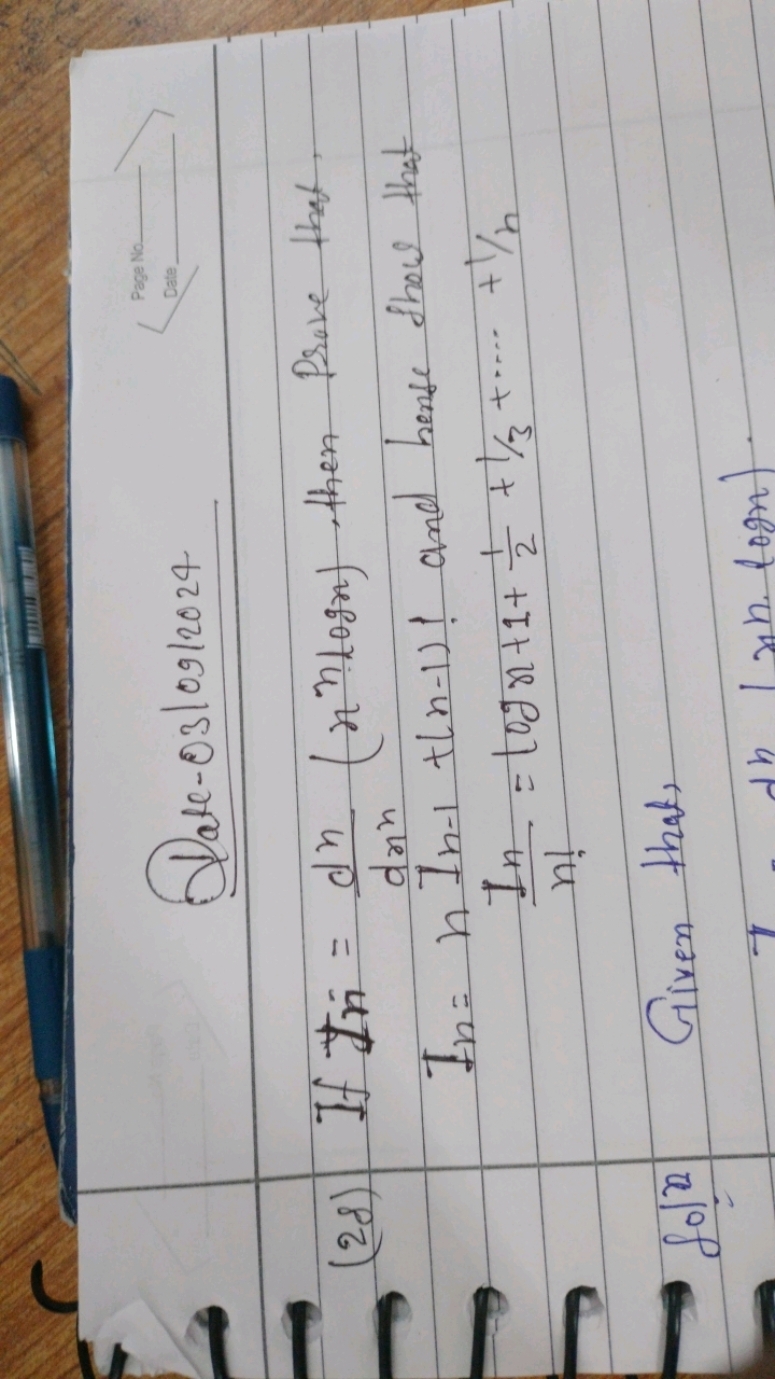 Page No.
Date
Date-03/09/2024
(28) If In = dⁿ/dxⁿ (xⁿ.logx), then Prove that,
In = n In-1 +(n-1)! and hense show that
In/n! = logx+1+ 1/2 + 1/3 +.... + 1/n
Solⁿ Given that,